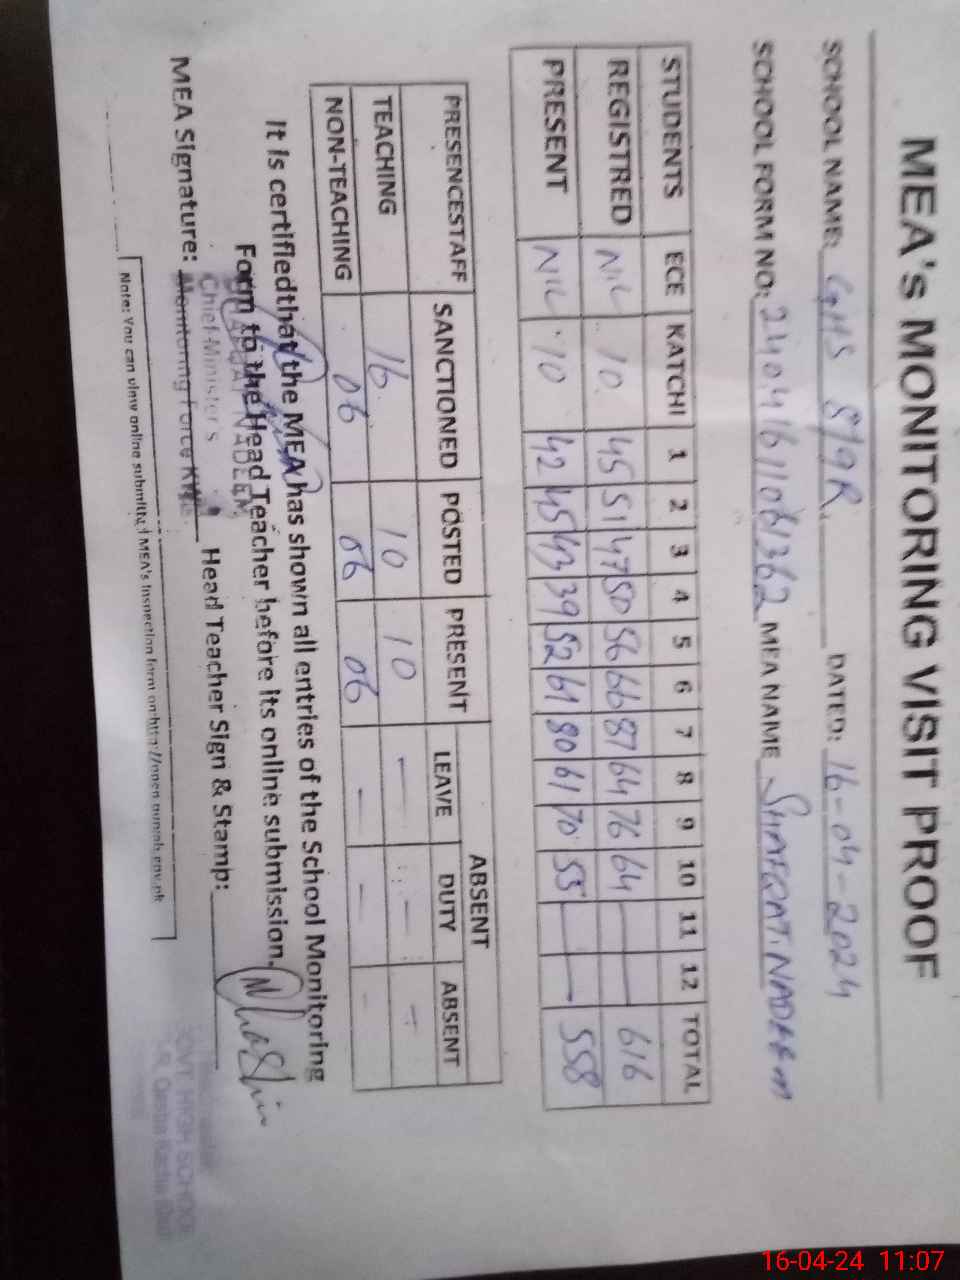 MEA's MONITORING VISIT PROOF
SCHOOL NAME: GHS 899R DATED: 16-04-2024
SCHOOL FORM NO: 24041611061362 MEA NAME SHAFQAT.NADEEM
STUDENTS ECE KATCHI 1 2 3 4 5 6 7 8 9 10 11 12 TOTAL
REGISTRED NIL 10 45 51 47 50 56 66 87 64 76 64 — — 616
PRESENT NIL 10 42 45 43 39 52 61 80 61 70 55 — — 558
ABSENT
PRESENCESTAFF SANCTIONED POSTED PRESENT LEAVE DUTY ABSENT
TEACHING 16 10 10 — — —
NON-TEACHING 06 06 06 — — -
It is certifiedthat the MEA has shown all entries of the School Monitoring
Form to the Head Teacher before its online submission.
SHAFQAT NADEEM
Chief Minister's
Monitoring Force KWL
MEA Signature: Head Teacher Sign & Stamp:
GOVT. HIGH SCHOOL
Note: You can view online submitted MEA's Inspection form on:http://open.punjab.gov.pk
16-04-24 11:07